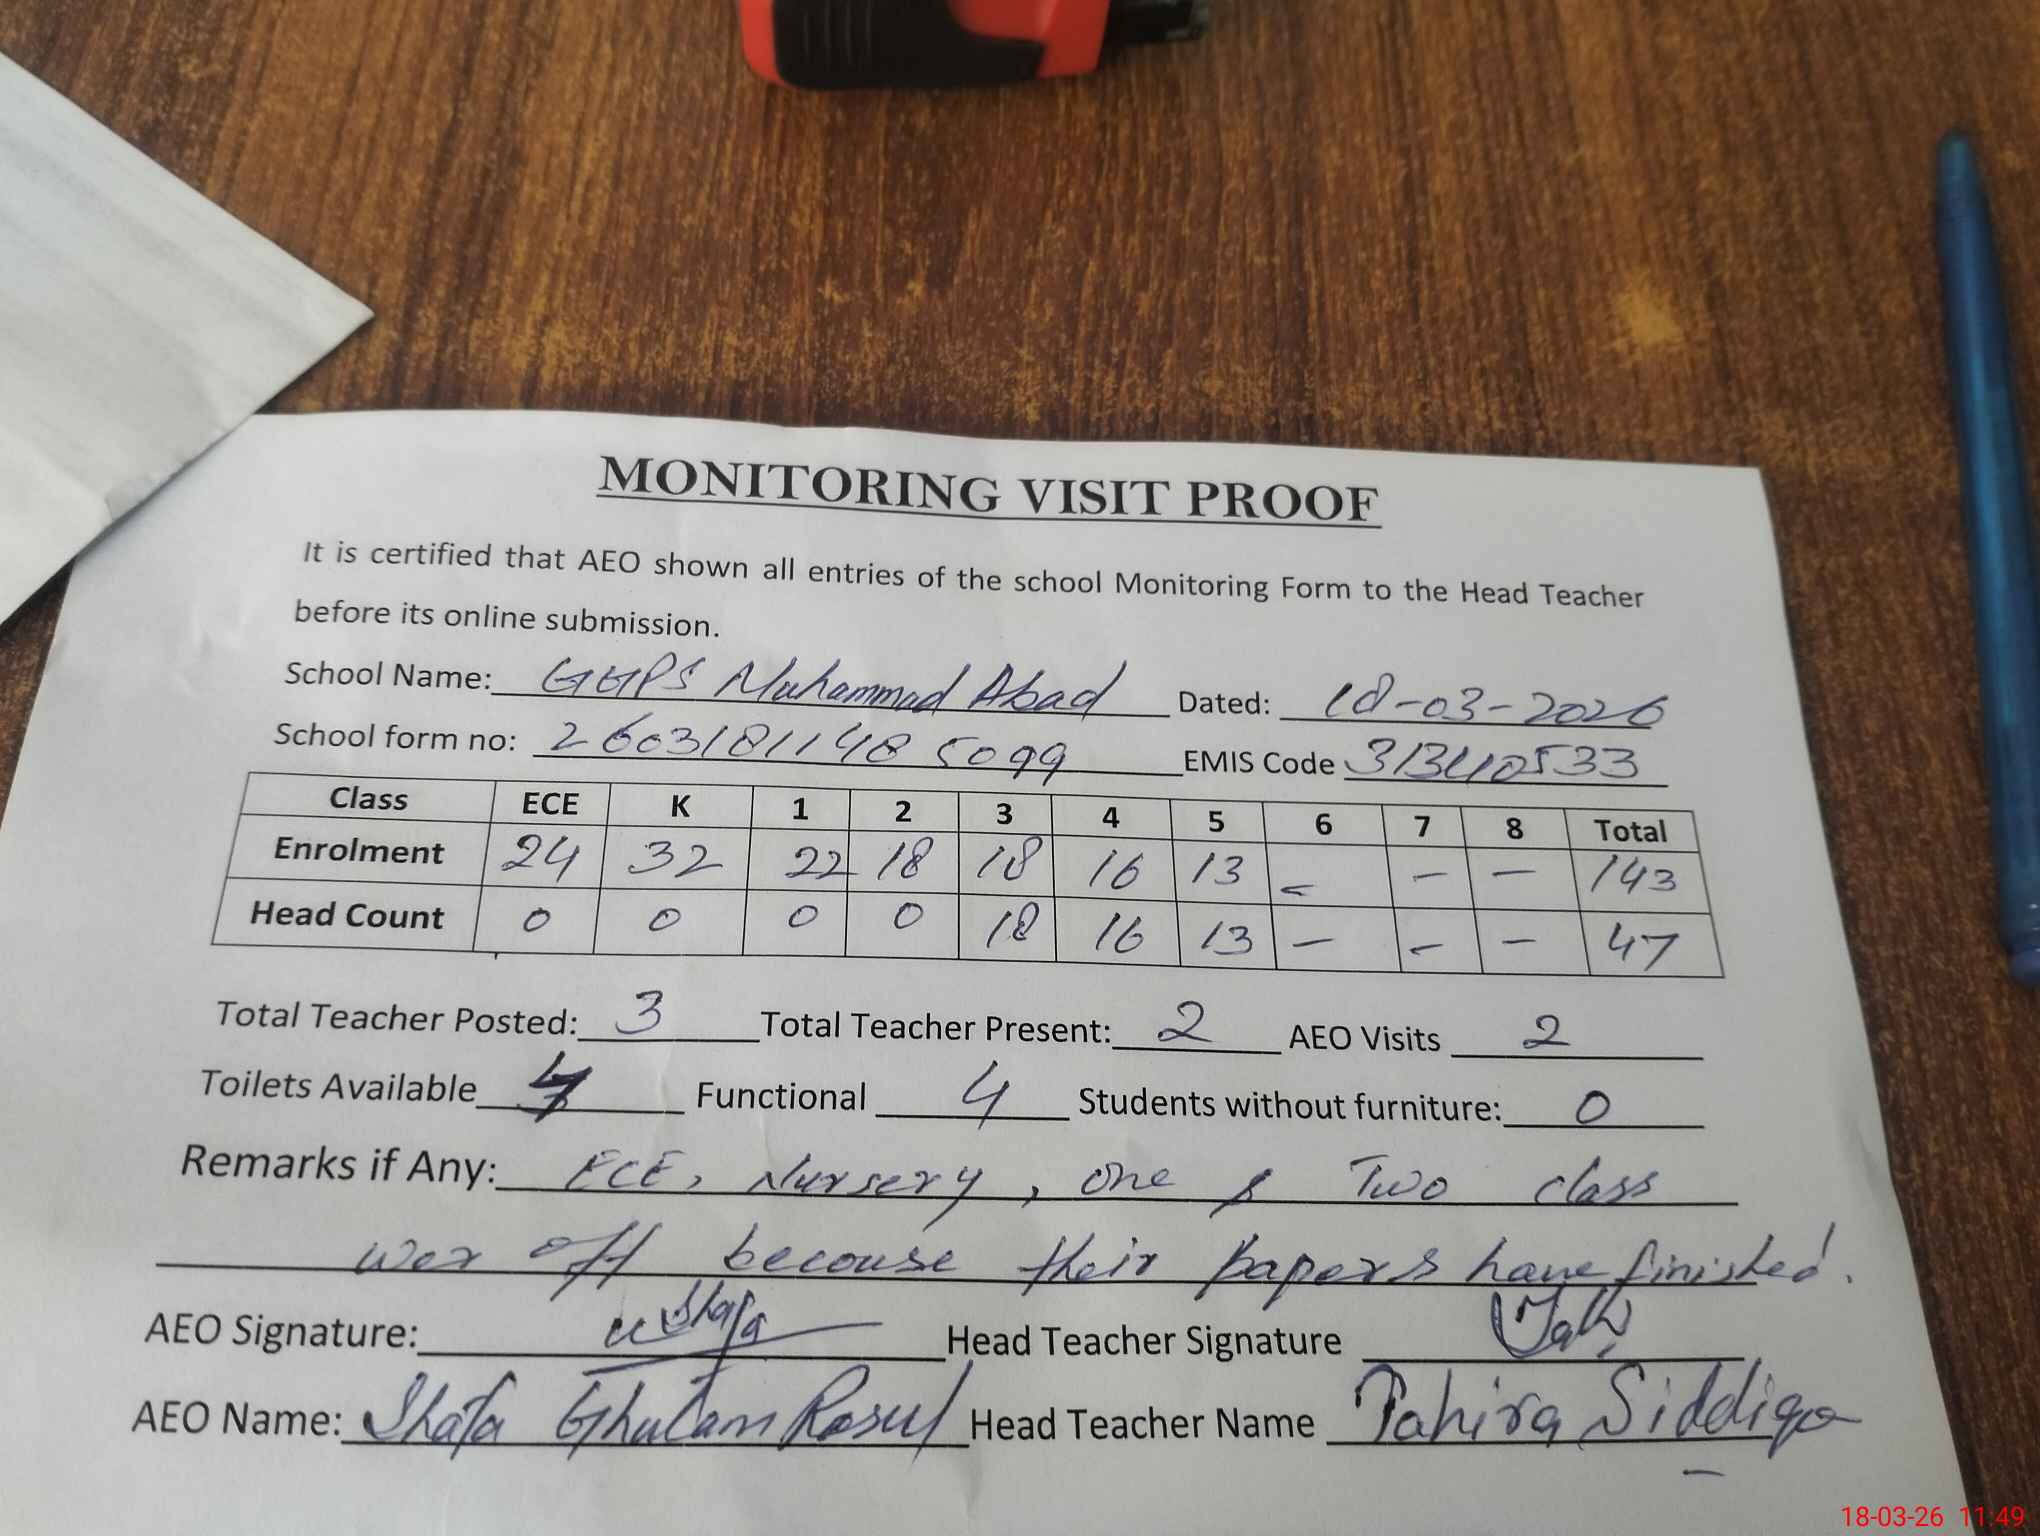 MONITORING VISIT PROOF
It is certified that AEO shown all entries of the school Monitoring Form to the Head Teacher
before its online submission.
School Name: GGPS Muhammad Abad Dated: 18-03-2026
School form no: 2603181148 5099 EMIS Code 31340533
Class ECE K 1 2 3 4 5 6 7 8 Total
Enrolment 24 32 22 18 18 16 13 - - - 143
Head Count 0 0 0 0 18 16 13 - - - 47
Total Teacher Posted: 3 Total Teacher Present: 2 AEO Visits 2
Toilets Available 4 Functional 4 Students without furniture: 0
Remarks if Any: ECE, Nursery, one & Two class
wer off becouse their papers have finished.
AEO Signature: Shafa Head Teacher Signature
AEO Name: Shafa Ghulam Rasul Head Teacher Name Tahira Siddiqa
18-03-26 11:49